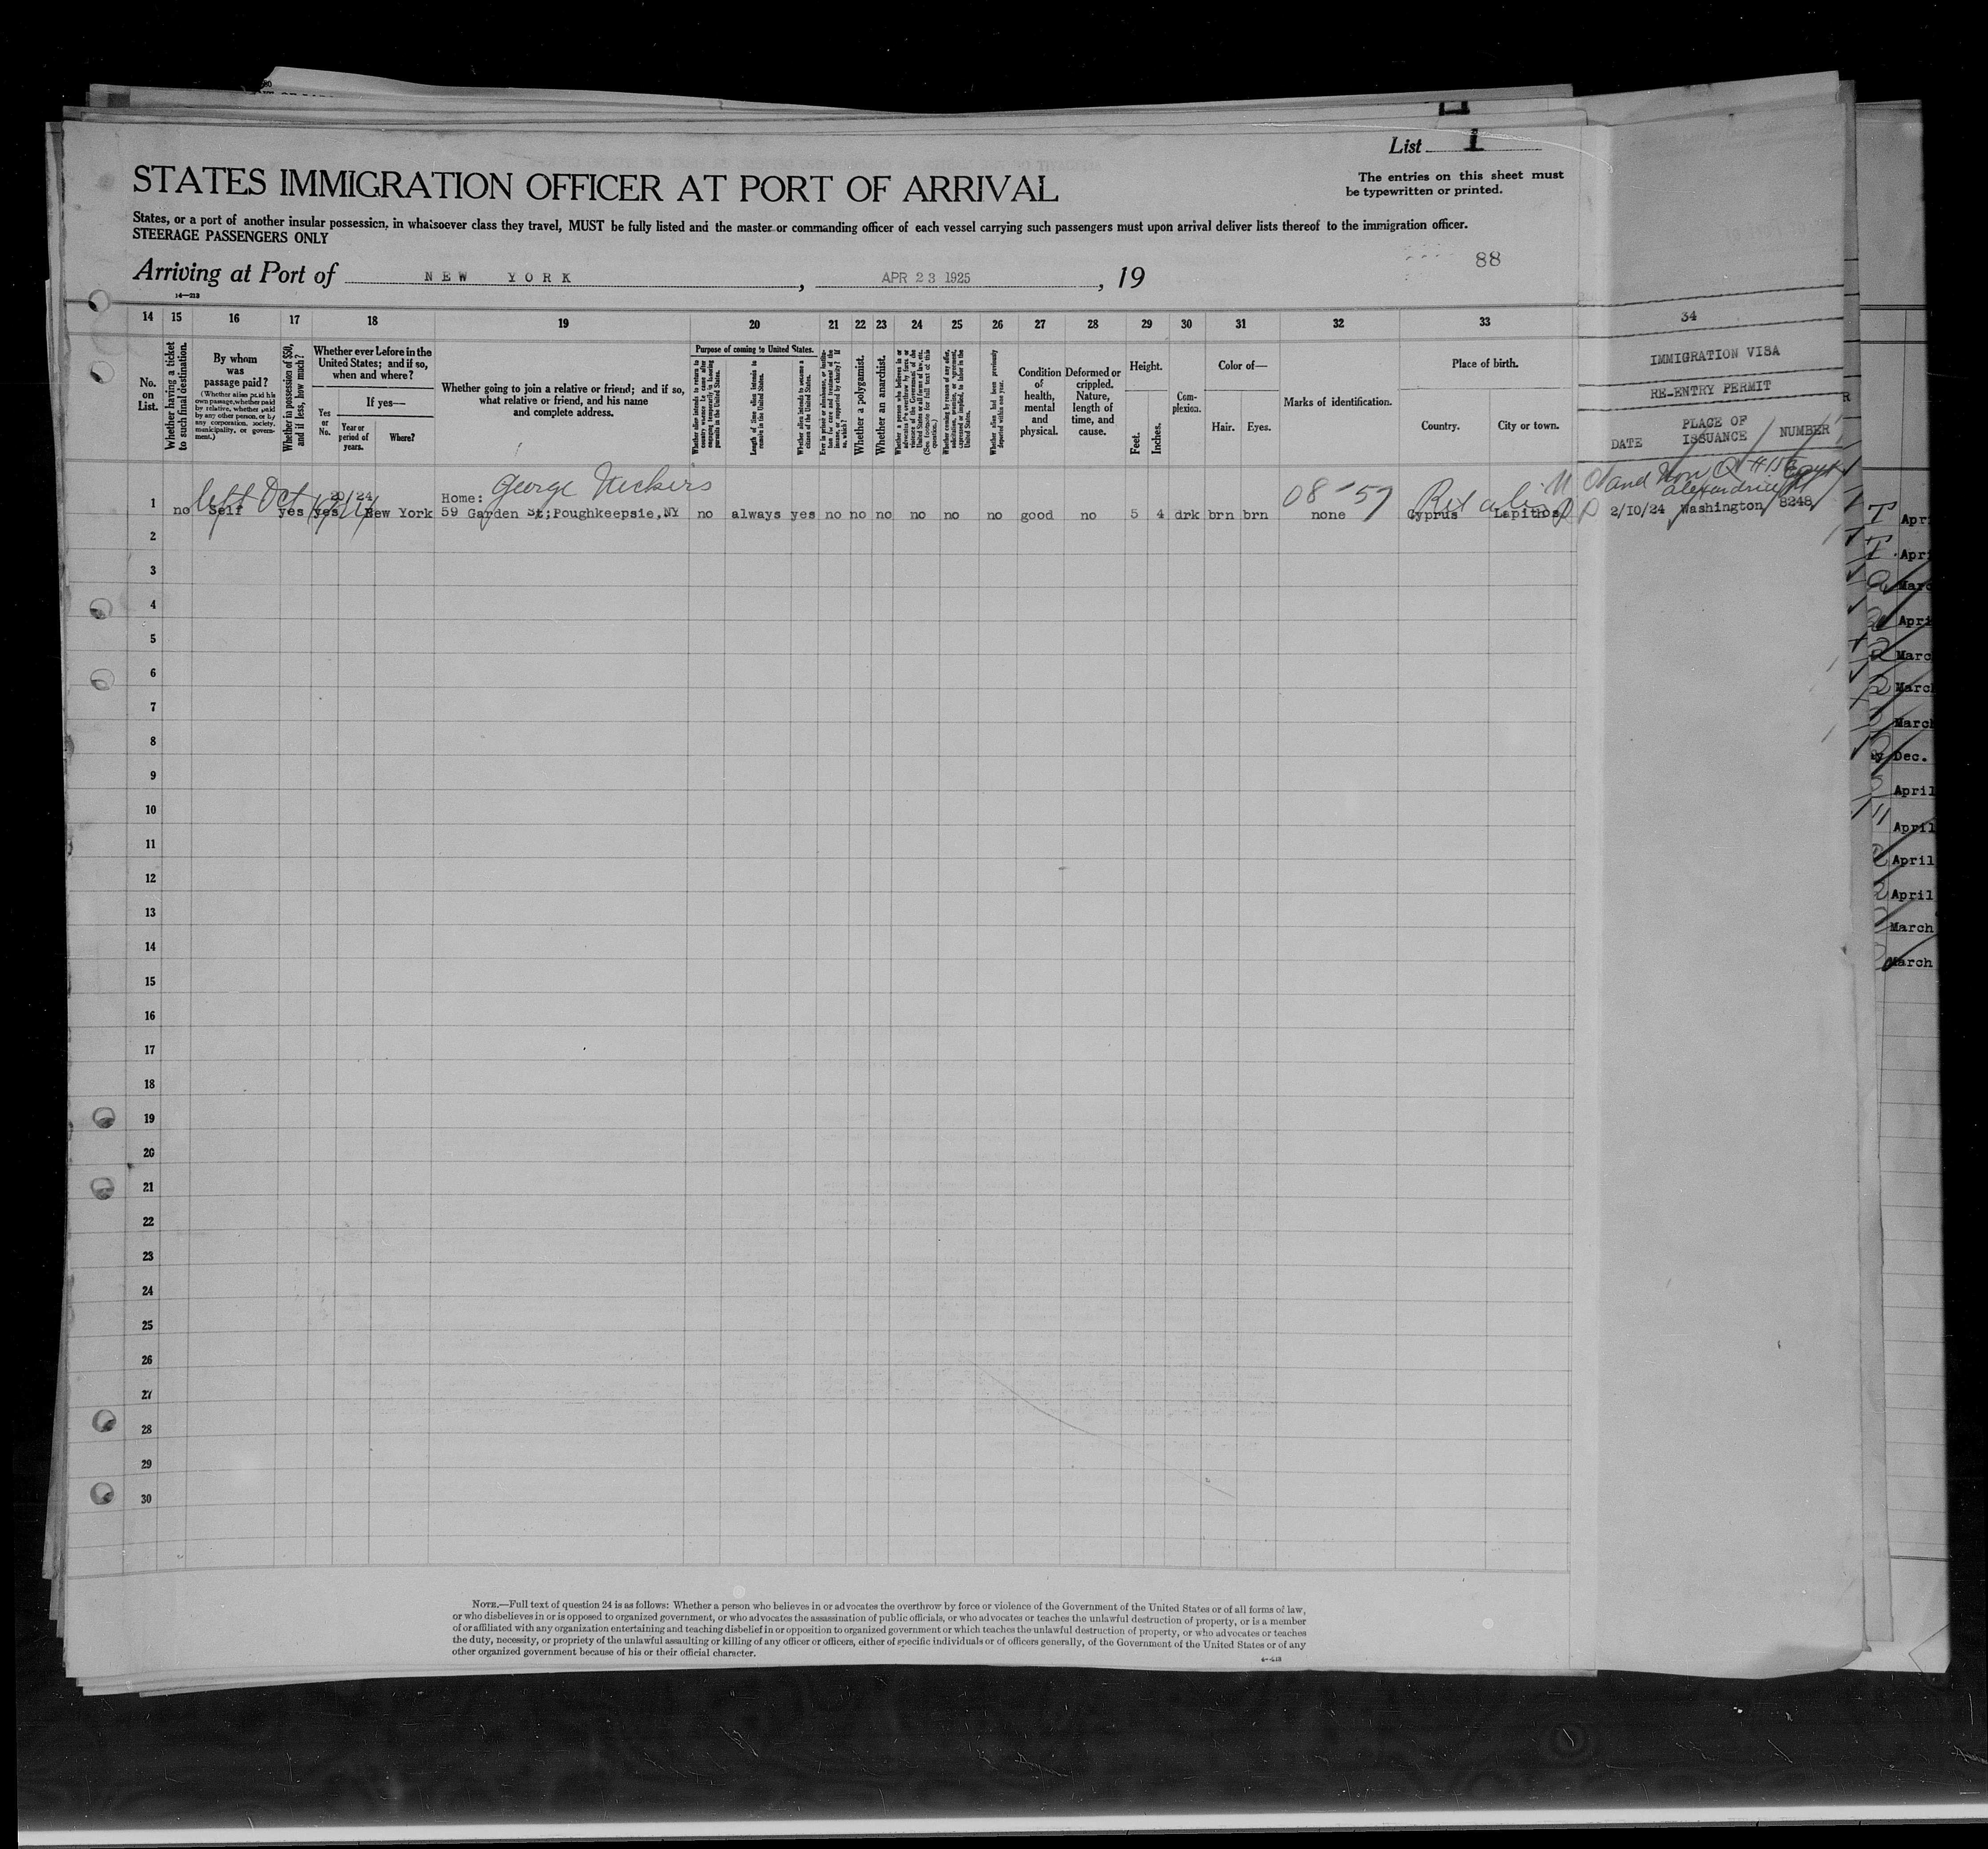 List 1
STATES IMMIGRATION OFFICER AT PORT OF ARRIVAL
The entries on this sheet must
be typewritten or printed.
States, or a port of another insular possession, in whatsoever class they travel, MUST be fully listed and the master or commanding officer of each vessel carrying such passengers must upon arrival deliver lists thereof to the immigration officer.
STEERAGE PASSENGERS ONLY
88
Arriving at Port of NEW YORK, APR 23 1925, 19
14—213
14 15 16 17 18 19 20 21 22 23 24 25 26 27 28 29 30 31 32 33 34
No. on List.
Whether having a ticket to such final destination.
By whom was passage paid?
(Whether alien paid his own passage, whether paid by relative, whether paid by any other person, or by any corporation, society, municipality, or government.)
Whether in possession of $50, and if less, how much?
Whether ever before in the United States; and if so, when and where?
Yes or No.
If yes—
Year or period of years.
Where?
Whether going to join a relative or friend; and if so, what relative or friend, and his name and complete address.
Purpose of coming to United States.
Whether alien intends to return to country whence he came after engaging temporarily in laboring pursuits in the United States.
Length of time alien intends to remain in the United States.
Whether alien intends to become a citizen of the United States.
Ever in prison or almshouse, or institution for care and treatment of the insane, or supported by charity? If so, which?
Whether a polygamist.
Whether an anarchist.
Whether a person who believes in or advocates the overthrow by force or violence of the Government of the United States or all forms of law, etc. (See footnote for full text of this question.)
Whether coming by reason of any offer, solicitation, promise, or agreement, expressed or implied, to labor in the United States.
Whether alien had been previously deported within one year.
Condition of health, mental and physical.
Deformed or crippled. Nature, length of time, and cause.
Height.
Feet. Inches.
Complexion.
Color of—
Hair. Eyes.
Marks of identification.
Place of birth.
Country. City or town.
IMMIGRATION VISA
RE-ENTRY PERMIT
DATE PLACE OF ISSUANCE NUMBER
left Oct George 08-57
Alexandria
20/24 Home:
1 no Self yes yes New York 59 Garden St; Poughkeepsie, NY no always yes no no no no no no good no 5 4 drk brn brn none Cyprus Lapithos 2/10/24 Washington 8248
2
3
4
5
6
7
8
9
10
11
12
13
14
15
16
17
18
19
20
21
22
23
24
25
26
27
28
29
30
NOTE.—Full text of question 24 is as follows: Whether a person who believes in or advocates the overthrow by force or violence of the Government of the United States or of all forms of law,
or who disbelieves in or is opposed to organized government, or who advocates the assassination of public officials, or who advocates or teaches the unlawful destruction of property, or is a member
of or affiliated with any organization entertaining and teaching disbelief in or opposition to organized government or which teaches the unlawful destruction of property, or who advocates or teaches
the duty, necessity, or propriety of the unlawful assaulting or killing of any officer or officers, either of specific individuals or of officers generally, of the Government of the United States or of any
other organized government because of his or their official character.
March
Dec.
April
April
April
April
March
March